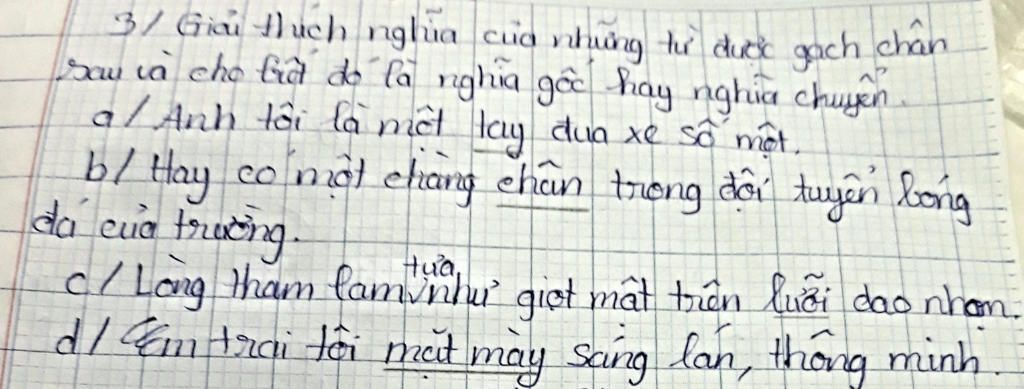 3/ Giải thích nghĩa của những từ được gạch chân
sau và cho biết đó là nghĩa gốc hay nghĩa chuyển.
a/ Anh tôi là một tay đua xe số một.
b/ Hay có một chàng chân trong đội tuyển bóng
đá của trường.
c/ Lòng tham lam tựa như giọt mật trên lưỡi dao nhọn.
d/ Em trai tôi mặt mày sáng lán, thông minh.